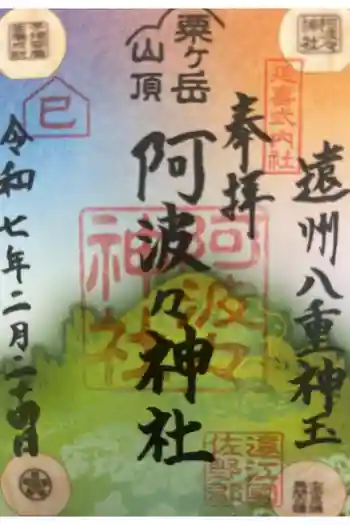 遠州八重神玉
奉拝
延喜式内社
粟ヶ岳
山頂
阿波々神社
阿波々
神社
遠江國
佐野郡
巳
令和七年二月二十四日